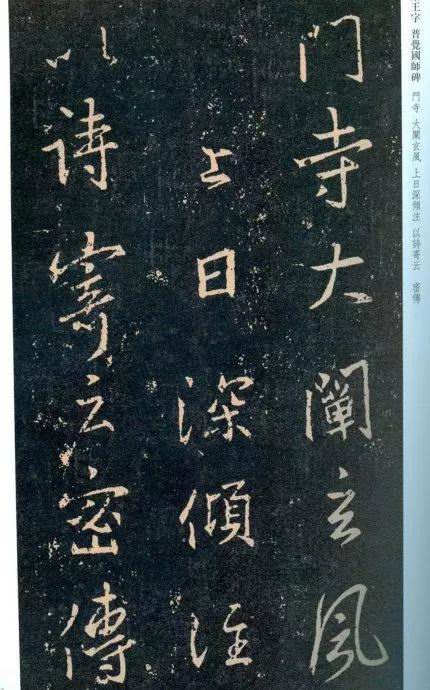 門寺大闡玄風
上日深傾注
以詩寄云密傳
王字 普覺國師碑 門寺 大闡玄風 上日深傾注 以詩寄云 密傳